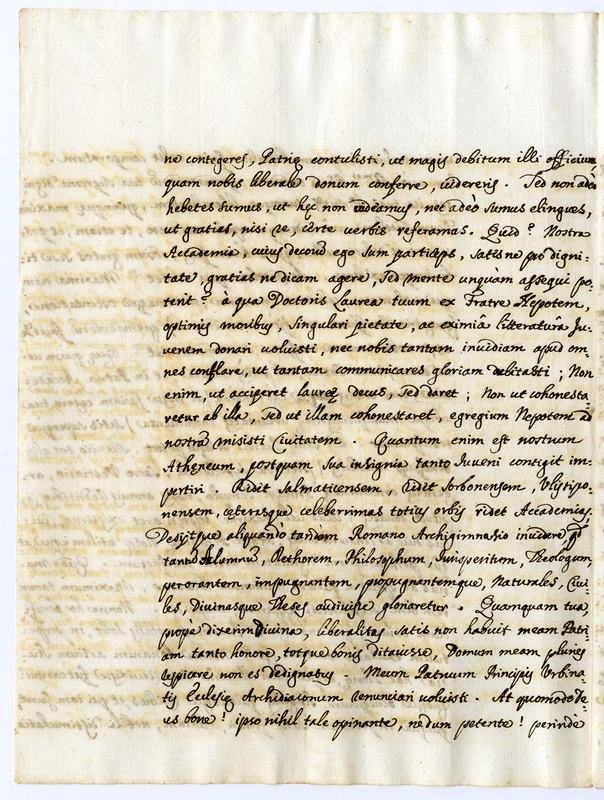 ne contegeres, Patrię contulisti, ut magis debitum illi officium
quam nobis liberale donum conferre, videreris. Sed non adeò
hebetes sumus, ut hęc non videamus, nec adeò sumus elingues,
ut gratias, nisi re, certe verbis referamus. Quid? Nostra
Accademia, cuius decoris ego sum particeps, satis ne pro digni-
tate, gratias ne dicam agere, sed mente unquàm assequi po-
terit? à qua Doctoris Laurea tuum ex Fratre Nepotem,
optimis moribus, singulari pietate, ac eximiâ litteraturâ Ju-
venem donari voluisti, nec nobis tantam invidiam apud om-
nes conflare, ut tantam communicares gloriam dubitasti; Non
enim, ut acciperet laureę decus, sed daret; Non ut cohonesta-
retur ab illa, sed ut illam cohonestaret, egregium Nepotem ad
nostrã misisti Civitatem. Quantum enim est nostrum
Atheneum, postquam sua insignia tanto Juveni contigit im-
pertiri. Ridit Salmaticensem, ridit Sorbonensem, Ulyssipo-
nensem, cęterasque celeberrimas totius orbis ridet Accademias,
Desijtque aliquandò tandem Romano Archigimnasio invidere, qd
tantũ Alumnũ, Rethorem, Philosophum, Jurisperitum, Theologum,
perorantem, impugnantem, propugnantemque, Naturales, Civi-
les, Divinasque Theses audivisse gloriaretur. Quamquam tua,
propè dixerim divina, liberalitas satis non habuit meam Patri-
am tanto honore, totque bonis ditavisse, Domum meam pluries
respicere non es dedignatus. Meum Patruum Principis Urbina-
tis Eclesię Archidiaconum renunciari voluisti. At quomodo De-
us bone! ipso nihil tale opinante, nedum petente! perindè